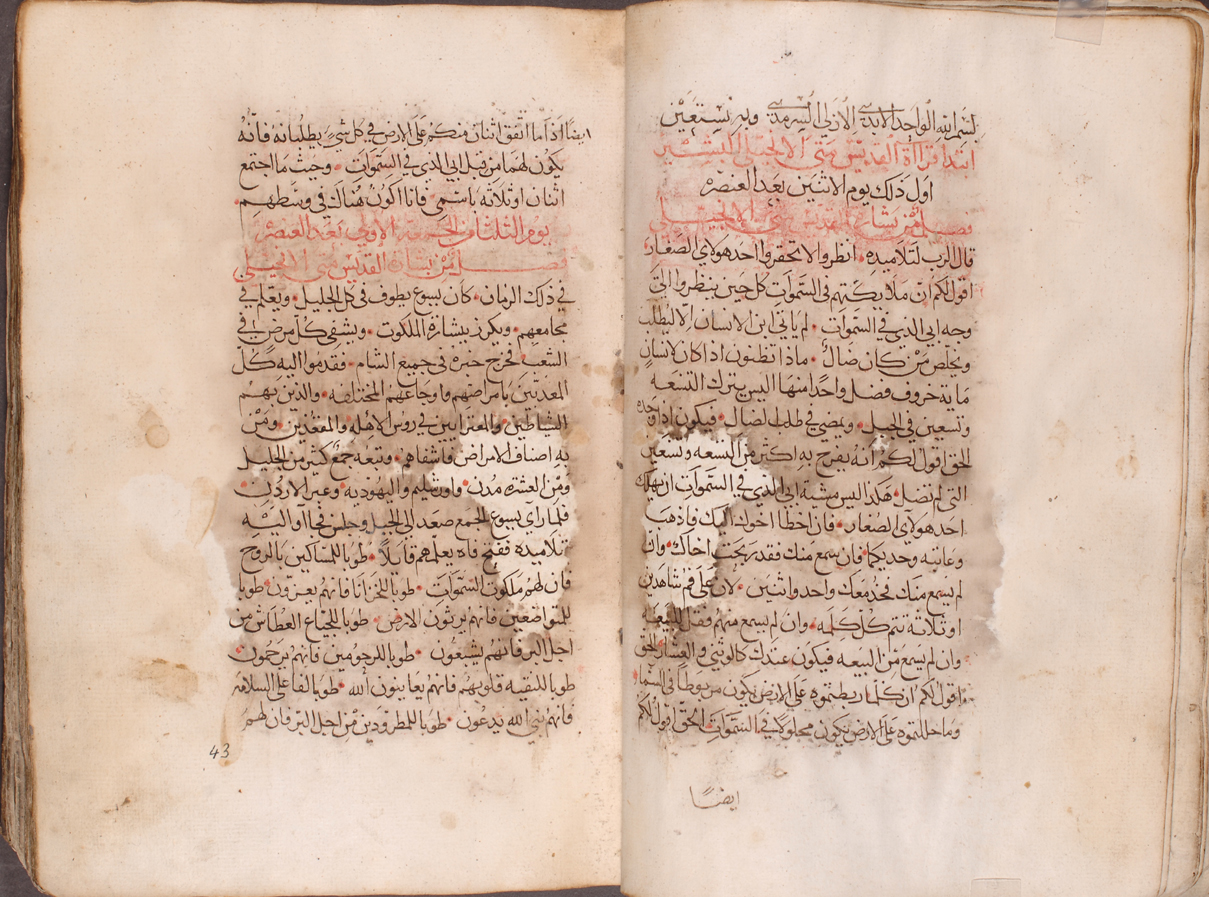 بسم الله الواحد الابدي الازلي السرمدي وبه نستعين
ابتدا قراآة القديس متى الانجيلي البشير
اول ذلك يوم الاثنين بعد العنصره
فصل من بشارة القديس متى الانجيلي
قال الرب لتلاميده انظروا لا تحقروا احد هولاي الصغار
اقول لكم ان ملايكتهم في السموات كل حين ينظروا الى
وجه ابي الذي في السموات لم ياتي ابن الانسان الا لطلب
ويخلص من كان ضال ماذا تظنون اذا كان لانسان
ماية خروف فضل واحدا منها اليس يترك التسعه
وتسعين في الجبل ويمضي في طلب الضال فيكون اذا وجده
الحق اقول لكم انه يفرح به اكثر من التسعه وتسعين
التي لم تضل هكدا ليس مشية ابي الذي في السموات ان يهلك
احد هولاي الصغار فان اخطا اخوك اليك فاذهب
وعاتبه وحديكما فان سمع منك فقد ربحت اخاك وان
لم يسمع منك فخد معك واحد واثنين لان على فم شاهدين
او ثلاثة تتم كل كلمه وان لم يسمع منهم فقل للبيعه
وان لم يسمع من البيعه فيكون عندك كالوثني والعشار الحق
اقول لكم ان كلما ربطتموه على الارض يكون مربوطا في السما
وما حللتموه على الارض يكون محلولا في السموات الحق اقول لكم
ايضا
ايضا اذا ما اتفق اثنان منكم على الارض في كل شي يطلبانه فانه
يكون لهما من قبل ابي الذي في السموات وحيث ما اجتمع
اثنان او ثلاثه باسمي فانا اكون هناك في وسطهم
يوم الثلثا من الجمعة الاولى بعد العنصره
فصل من بشارة القديس متى الانجيلي
في ذلك الزمان كان يسوع يطوف في كل الجليل ويعلم في
مجامعهم ويكرز ببشارة الملكوت ويشفي كل مرض في
الشعب فخرج خبره في جميع الشام فقدموا اليه كل
المعدبين بامراضهم واوجاعهم المختلفه والذين بهم
الشياطين والمعترايين في روس الاهله والمقعدين ومن
به اصناف الامراض فاشفاهم وتبعه جمع كثير من الجليل
ومن العشره مدن واورشليم واليهودية وعبر الاردن
فلما راي يسوع الجمع صعد الي الجبل وجلس فجاآو اليه
تلاميده ففتح فاه يعلمهم قايلا طوبا للمساكين بالروح
فان لهم ملكوت السموات طوبا للحزانا فانهم يعزون طوبا
للمتواضعين فانهم يرثون الارض طوبا للجياع العطاش من
اجل البر فانهم يشبعون طوبا للرحومين فانهم يرحمون
طوبا للنقيه قلوبهم فانهم يعاينون الله طوبا لفاعلى السلامه
فانهم بني الله يدعون طوبا للمطرودين من اجل البر فان لهم
43